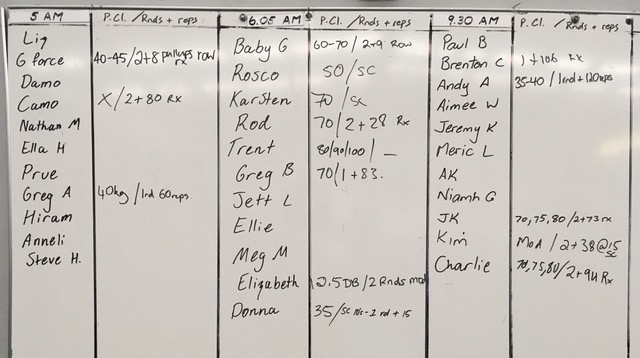 5 AM P.Cl. /Rnds + reps
Liz
G force 40-45/2+8 pullups row rx
Damo
Camo X/2+80 Rx
Nathan M
Ella H
Prue
Greg A 40kg/1rd 60reps
Hiram
Anneli
Steve H.
6.05 AM P.Cl. /Rnds + reps
Baby G 60-70/2+9 Row
Rosco 50/SC
Karsten 70/Sc
Rod 70/2+28 Rx
Trent 80/90/100/_
Greg B 70/1+83.
Jett L
Ellie
Meg M
Elizabeth 12.5DB/2Rnds mod
Donna 35/sc 1rd + 15
9.30 AM P.Cl. /Rnds + reps
Paul B
Brenton C 1+106 RX
Andy A 35-40/1rnd+120reps
Aimee W
Jeremy K
Meric L
AK
Niamh G
JK 70,75,80/2+73 rx
Kim MOA/2+38@15 SC
Charlie 70,75,80/2+94 Rx